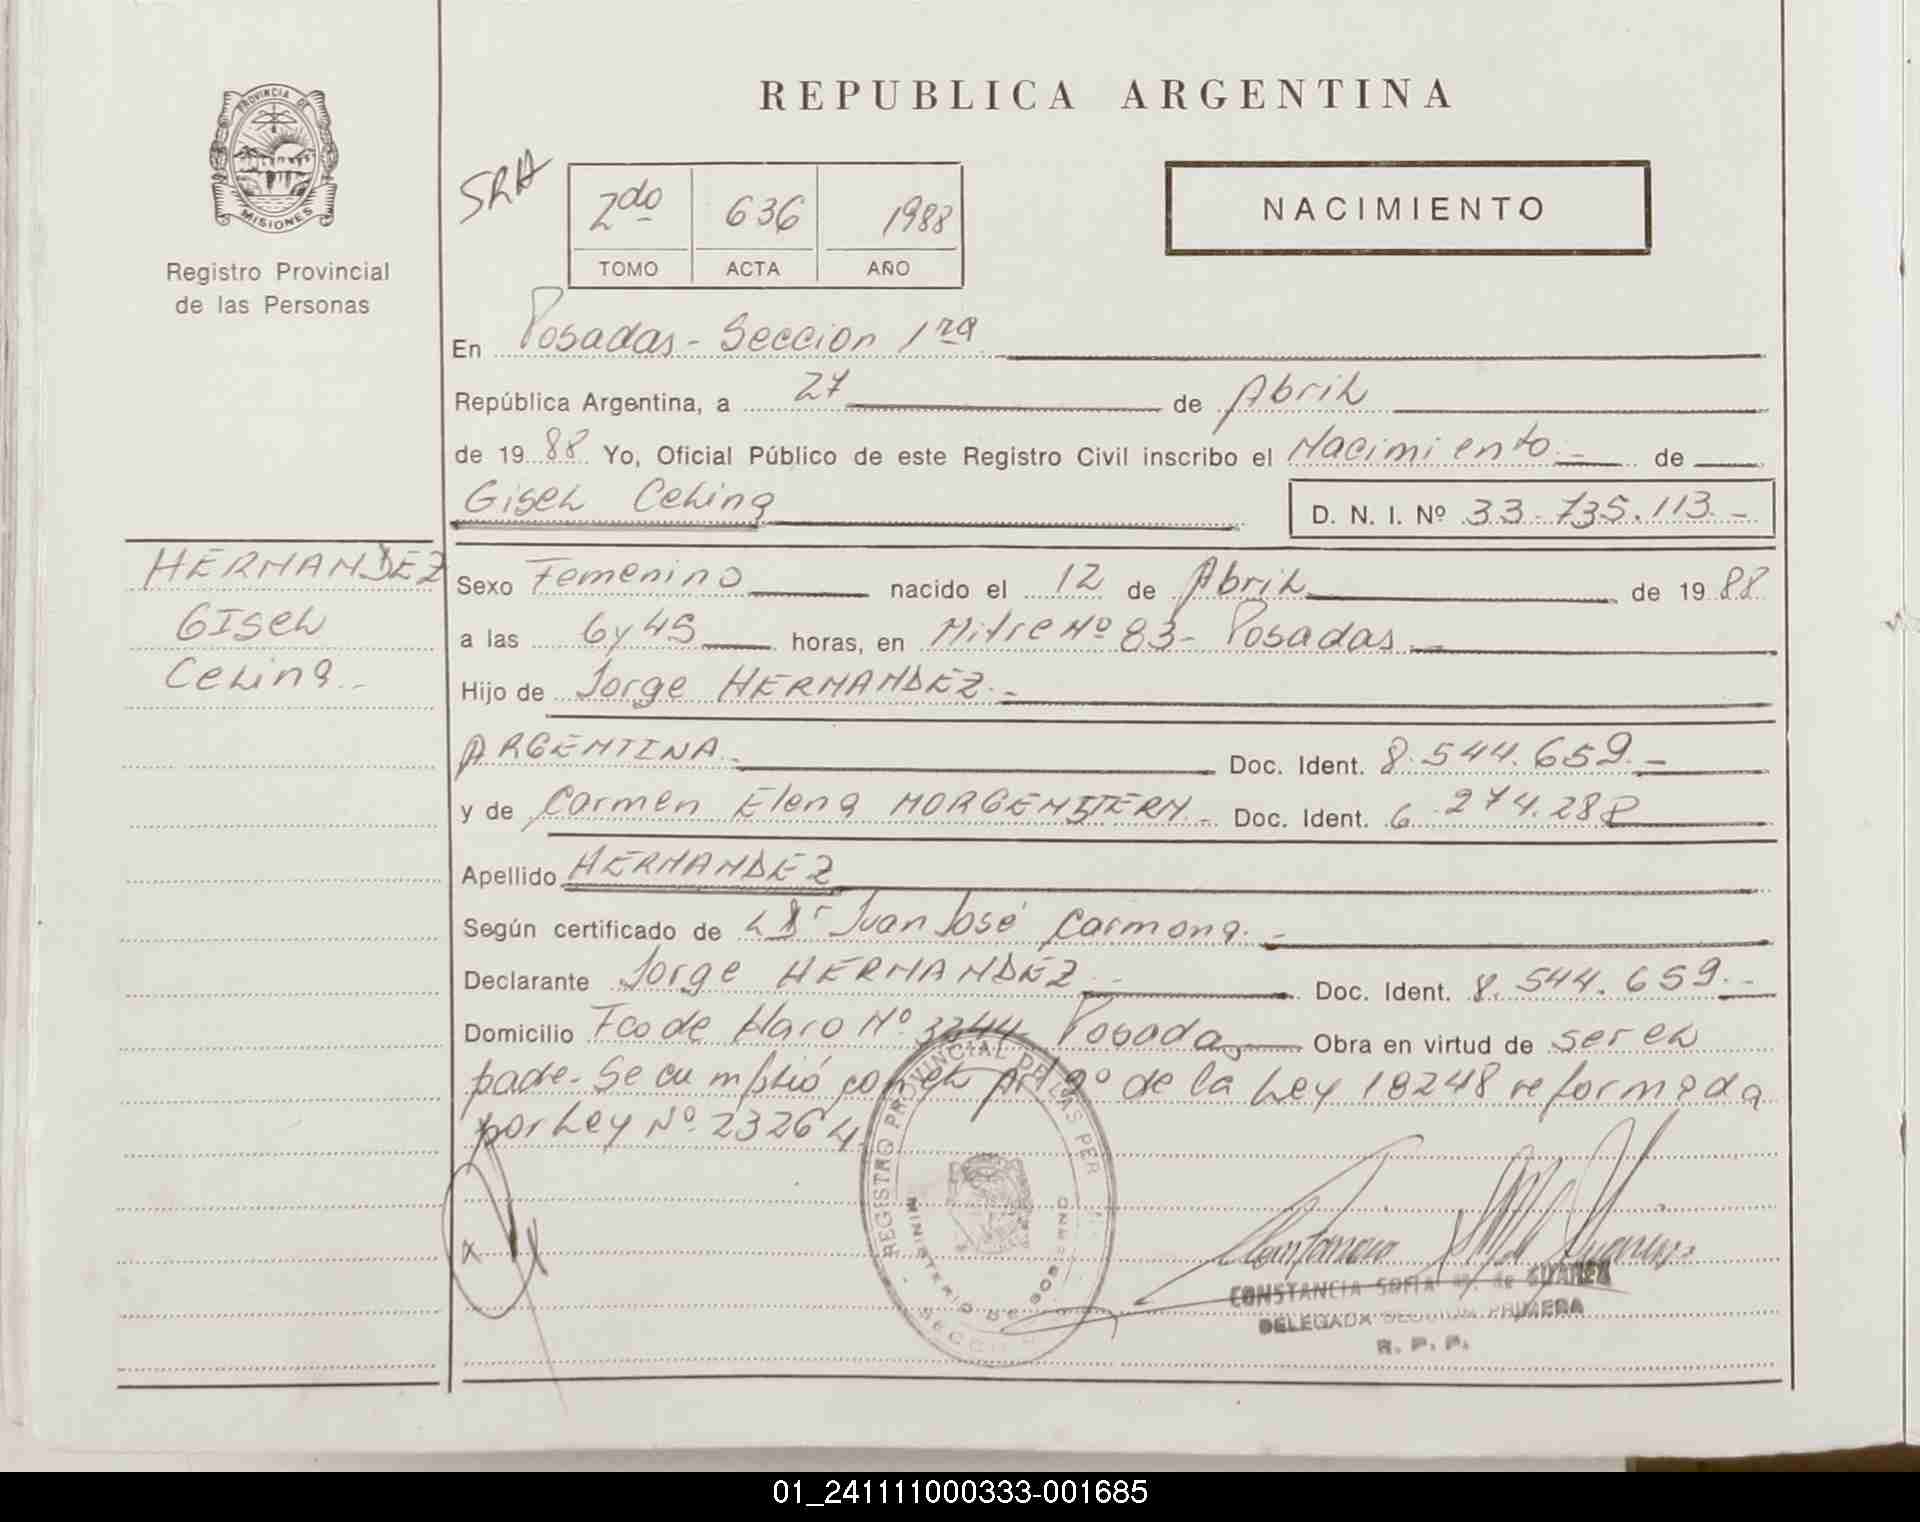 PROVINCIA DE
MISIONES
Registro Provincial
de las Personas
REPUBLICA ARGENTINA
2do 636 1988
TOMO ACTA AÑO
NACIMIENTO
En Posadas - Seccion 1ra
República Argentina, a 27 de Abril
de 1988 Yo, Oficial Público de este Registro Civil inscribo el Nacimiento.- de
Gisel Celina D. N. I. Nº 33.735.113.-
HERNANDEZ
Gisel
Celina.-
Sexo Femenino nacido el 12 de Abril de 1988
a las 6 y 45 horas, en Mitre Nº 83 - Posadas
Hijo de Jorge HERNANDEZ.-
ARGENTINA.- Doc. Ident. 8.544.659.-
y de Carmen Elena MORGENSTERN.- Doc. Ident. 6.274.288
Apellido HERNANDEZ
Según certificado de Dr Juan José Carmona.-
Declarante Jorge HERNANDEZ.- Doc. Ident. 8.544.659.-
Domicilio Fco de Haro Nº 3244 Posadas Obra en virtud de ser el
padre - Se cumplió con el Art 9º de la Ley 18248 reformada
por Ley Nº 23264
REGISTRO PROVINCIAL DE LAS PER
MINISTERIO DE GOBIERNO
X
CONSTANCIA SOFIA M. de SUAREZ
DELEGADA SECCION PRIMERA
R. P. P.
01_241111000333-001685